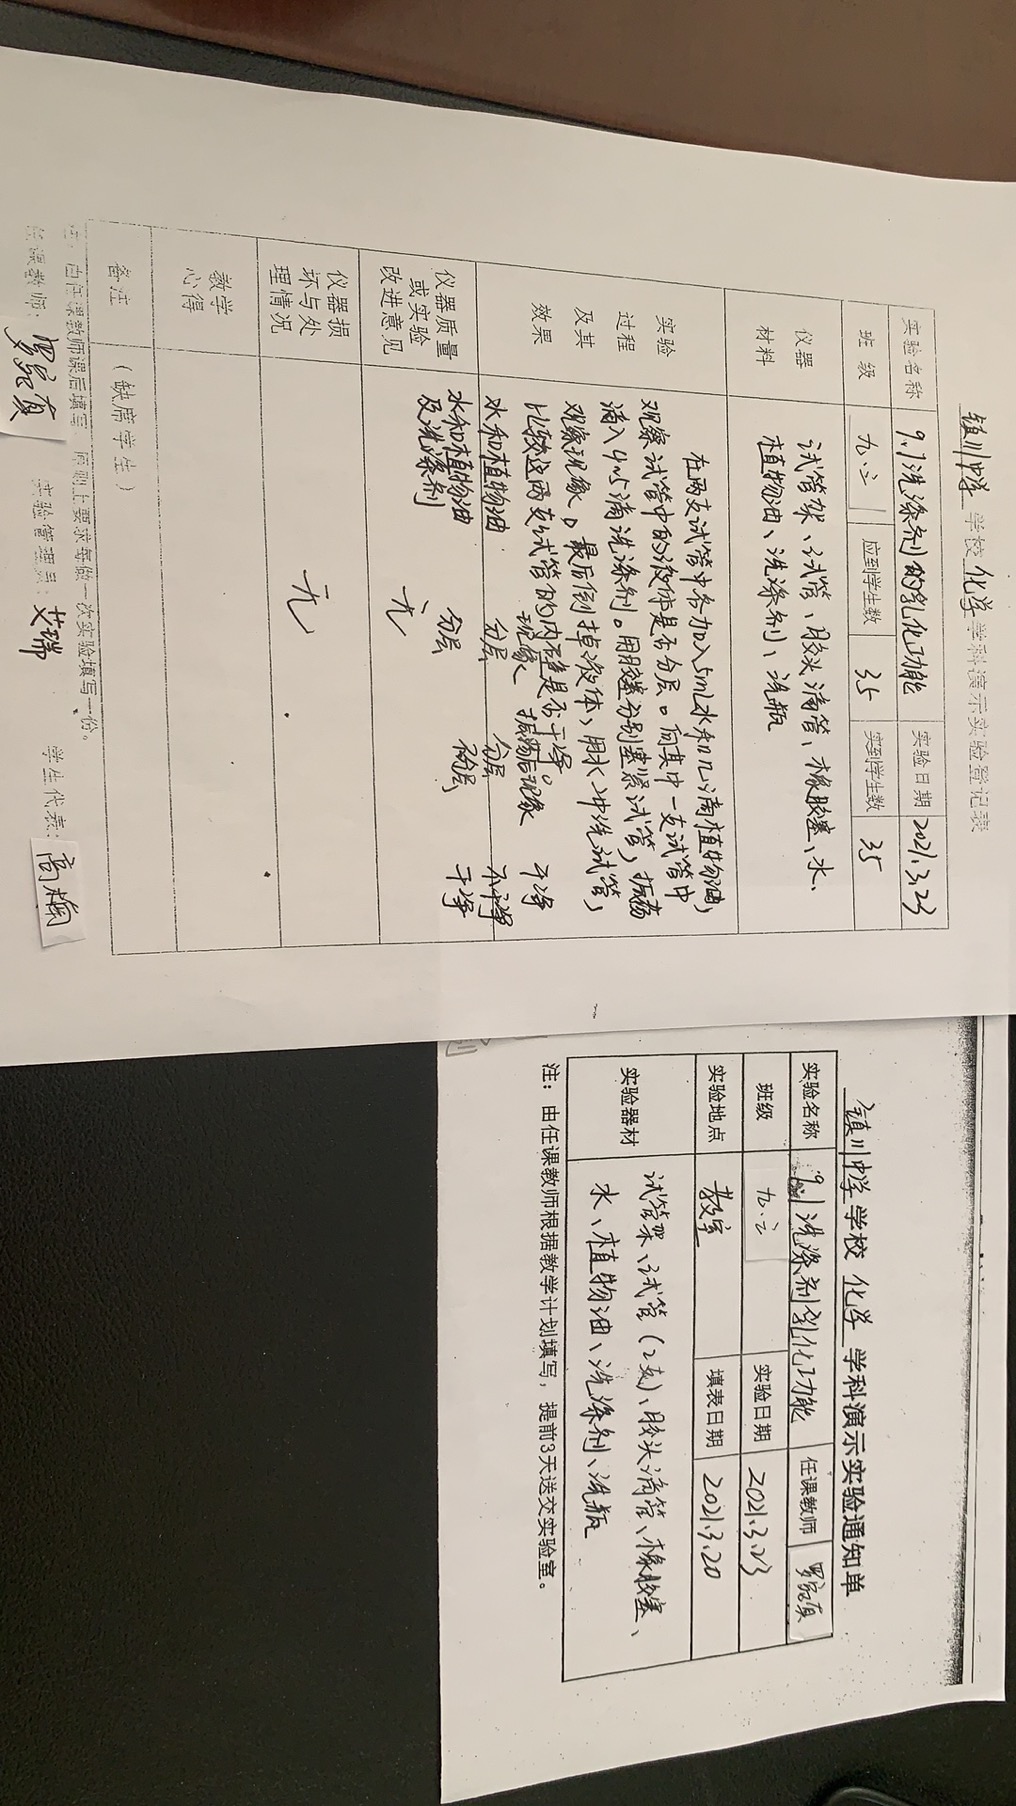 镇川中学 学校 化学 学科演示实验登记表
实验名称 9.1洗涤剂的乳化功能 实验日期 2021.3.23
班 级 九.二 应到学生数 35 实到学生数 35
仪器
材料
试管架、试管、胶头滴管、橡胶塞、水、
植物油、洗涤剂、洗瓶
实验
过程
及其
效果
在两支试管中各加入5mL水和几滴植物油,
观察试管中的液体是否分层。向其中一支试管中
滴入4~5滴洗涤剂。用胶塞分别塞紧试管,振荡
观察现象。最后倒掉液体,用水冲洗试管,
比较这两支试管的内壁是否干净。
现象 振荡后现象 干净
水和植物油 分层 分层 不干净
水和植物油 分层 不分层 干净
及洗涤剂
仪器质量
或实验
改进意见
无
仪器损
坏与处
理情况
无
教学
心得
备注 (缺席学生)
注:由任课教师课后填写,原则上要求每做一次实验填写一份。
任课教师: 实验管理员:艾瑞 学生代表:高梅
镇川中学 学校 化学 学科演示实验通知单
实验名称 9.1洗涤剂乳化功能 任课教师
班级 九.二 实验日期 2021.3.23
实验地点 教室 填表日期 2021.3.20
实验器材
试管架、试管(2支)、胶头滴管、橡胶塞、
水、植物油、洗涤剂、洗瓶
注:由任课教师根据教学计划填写,提前3天送交实验室。